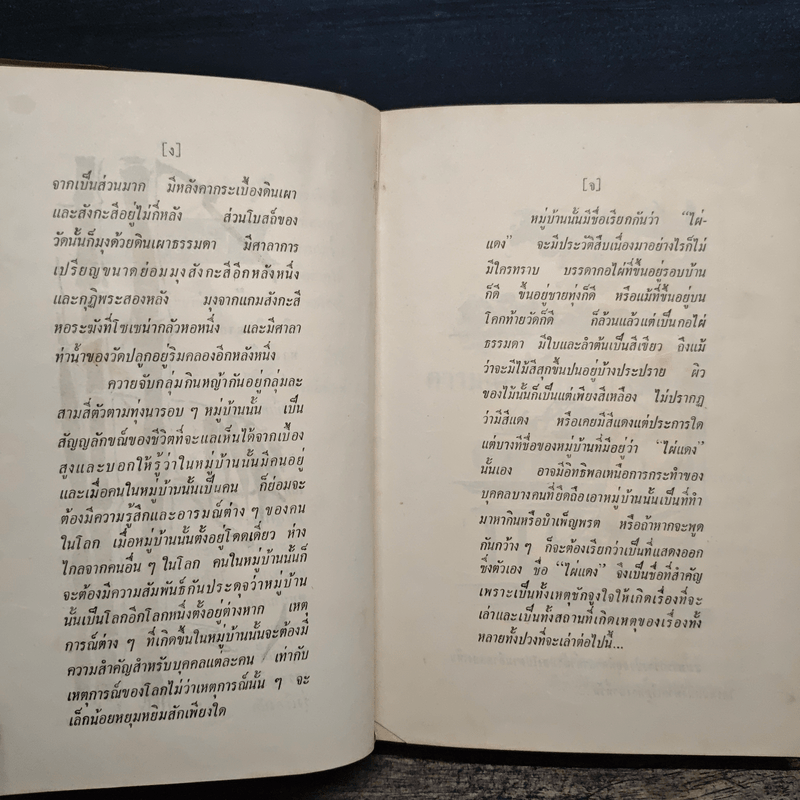 [ง]
จากเป็นส่วนมาก มีหลังคากระเบื้องดินเผา
และสังกะสีอยู่ไม่กี่หลัง ส่วนโบสถ์ของ
วัดนั้นก็มุงด้วยดินเผาธรรมดา มีศาลาการ
เปรียญขนาดย่อมมุงสังกะสีอีกหลังหนึ่ง
และกุฏิพระสองหลัง มุงจากแกมสังกะสี
หอระฆังที่โซเซน่ากลัวหอหนึ่ง และมีศาลา
ท่าน้ำของวัดปลูกอยู่ริมคลองอีกหลังหนึ่ง
ควายจับกลุ่มกินหญ้ากันอยู่กลุ่มละ
สามสี่ตัวตามทุ่งนารอบ ๆ หมู่บ้านนั้น เป็น
สัญญลักขณ์ของชีวิตที่จะแลเห็นได้จากเบื้อง
สูงและบอกให้รู้ว่าในหมู่บ้านนั้นมีคนอยู่
และเมื่อคนในหมู่บ้านนั้นเป็นคน ก็ย่อมจะ
ต้องมีความรู้สึกและอารมณ์ต่าง ๆ ของคน
ในโลก เมื่อหมู่บ้านนั้นตั้งอยู่โดดเดี่ยว ห่าง
ไกลจากคนอื่น ๆ ในโลก คนในหมู่บ้านนั้นก็
จะต้องมีความสัมพันธ์กันประดุจว่าหมู่บ้าน
นั้นเป็นโลกอีกโลกหนึ่งตั้งอยู่ต่างหาก เหตุ
การณ์ต่าง ๆ ที่เกิดขึ้นในหมู่บ้านนั้นจะต้องมี
ความสำคัญสำหรับบุคคลแต่ละคน เท่ากับ
เหตุการณ์ของโลกไม่ว่าเหตุการณ์นั้น ๆ จะ
เล็กน้อยหยุมหยิมสักเพียงใด
[จ]
หมู่บ้านนั้นมีชื่อเรียกกันว่า “ไผ่-
แดง” จะมีประวัติสืบเนื่องมาอย่างไรก็ไม่
มีใครทราบ บรรดากอไผ่ที่ขึ้นอยู่รอบบ้าน
ก็ดี ขึ้นอยู่ชายทุ่งก็ดี หรือแม้ที่ขึ้นอยู่บน
โคกท้ายวัดก็ดี ก็ล้วนแล้วแต่เป็นกอไผ่
ธรรมดา มีใบและลำต้นเป็นสีเขียว ถึงแม้
ว่าจะมีไม้สีสุกขึ้นปนอยู่บ้างประปราย ผิว
ของไม้นั้นก็เป็นแต่เพียงสีเหลือง ไม่ปรากฏ
ว่ามีสีแดง หรือเคยมีสีแดงแต่ประการใด
แต่บางทีชื่อของหมู่บ้านที่มีอยู่ว่า “ไผ่แดง”
นั้นเอง อาจมีอิทธิพลเหนือการกระทำของ
บุคคลบางคนที่ยึดถือเอาหมู่บ้านนั้นเป็นที่ทำ
มาหากินหรือบำเพ็ญพรต หรือถ้าหากจะพูด
กันกว้าง ๆ ก็จะต้องเรียกว่าเป็นที่แสดงออก
ซึ่งตัวเอง ชื่อ “ไผ่แดง” จึงเป็นชื่อที่สำคัญ
เพราะเป็นทั้งเหตุชักจูงใจให้เกิดเรื่องที่จะ
เล่าและเป็นทั้งสถานที่เกิดเหตุของเรื่องทั้ง
หลายทั้งปวงที่จะเล่าต่อไปนี้...